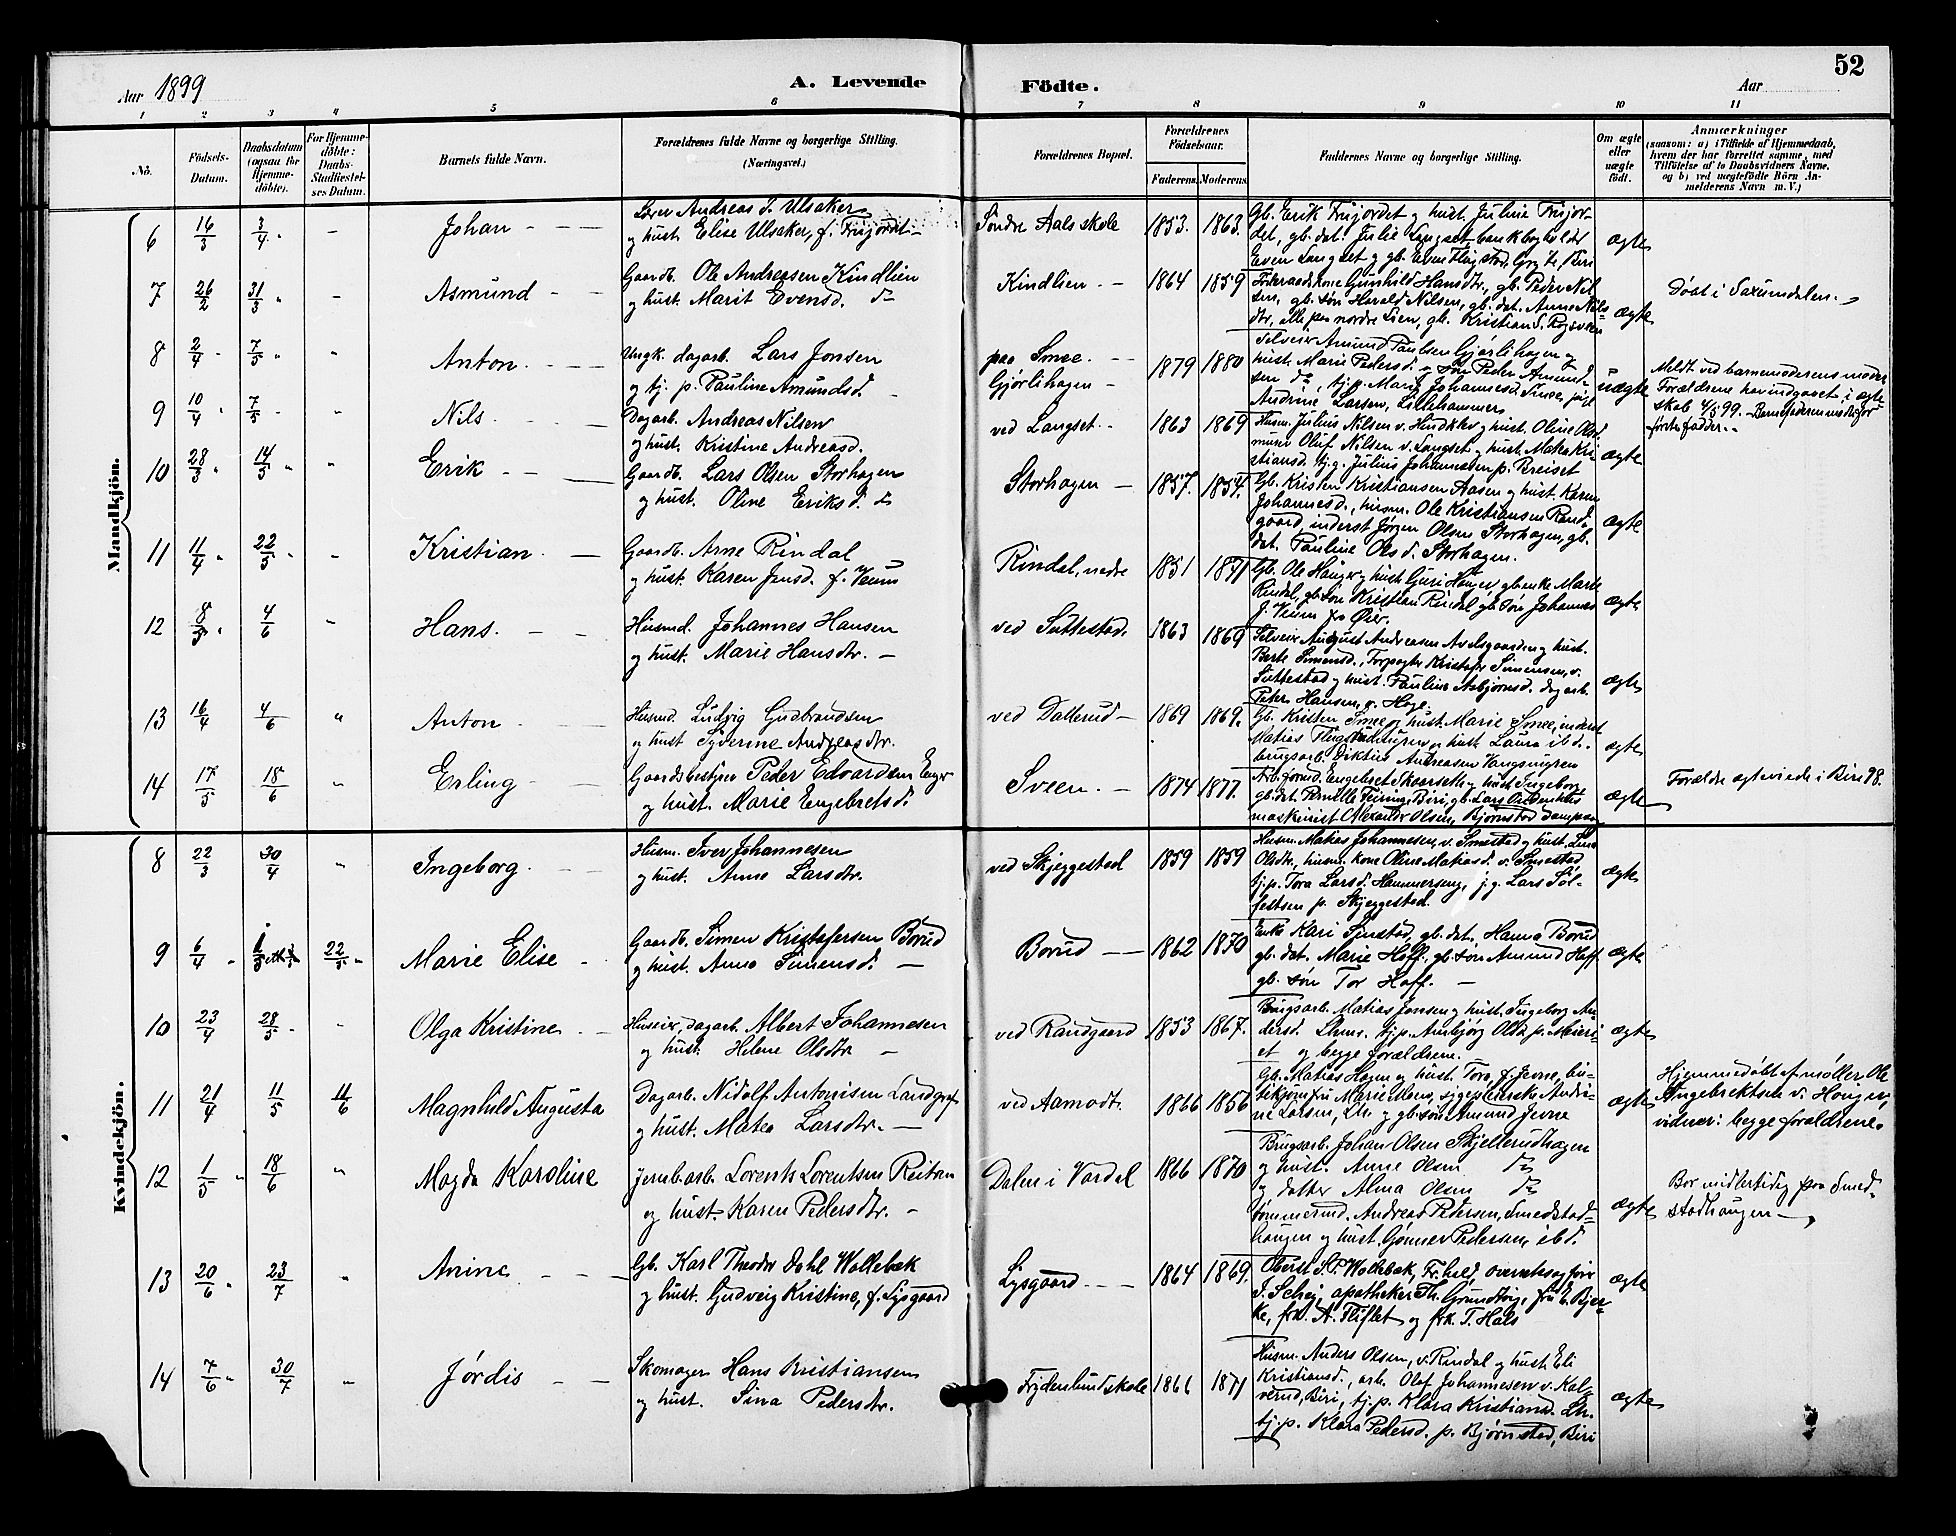 52
Aar 1899
A. Levende Födte.
Aar
1 2 3 4 5 6 7 8 9 10 11
No.
Födsels-Datum.
Daabsdatum (ogsaa for Hjemmedöbte).
For Hjemmedöbte: Daabs-Stadfæstelses Datum.
Barnets fulde Navn.
Forældrenes fulde Navne og borgerlige Stilling. (Næringsvei.)
Forældrenes Bopæl.
Forældrenes Födselsaar.
Faderens. Moderens.
Faddernes Navne og borgerlige Stilling.
Om ægte eller uægte födt.
Anmærkninger (saasom: a) i Tilfælde af Hjemmedaab, hvem der har forrettet samme, med Tilföielse af to Daabsvidners Navne, og b) ved uægtefödte Börn Anmelderens Navn m. V.)
Mandkjön.
6 16/3 3/4 " - Johan - - -
Lærer Andreas J. Ulsaker
og hust. Elise Ulsaker, f. Frijordet -
Søndre Aals skole 1853. 1863.
Gb. Erik Frijordet og hust. Juline Frijor-
det, gb. dat. Julie Langset, bankbogholder
Even Langset og gb. Even Flugstad,
ægte
7 26/2 31/3 " - Asmund - - -
Gaardb. Ole Andreasen Kindlien
og hust. Marit Evensd. do
Kindlien - - 1864 1859
Føderaadskone Gunhild Hansdtr., gb. Peder Nil-
sen, gb. søn Herald Nilsen, gb. dat. Anne Nils-
dtr, alle paa nordre Lien, gb. Kristian S. Rogsveen
ægte
Døbt i Saxumdalen.
8 2/4 " 7/5 " " Anton. - - -
Ungk. dagarb. Lars Jonsen
og tj. p. Pauline Amundsd.
paa Smee. - -
Gjørlihagen - 1879 1880
Selveier Amund Paulsen Gjørlihagen og
hust. Marie Pedersd. og søn Peder Amund-
sen do, tj. p. Marit Johannesd. Smee, pige
Andrine Larsen, Lillehammer
uægte
Meldt ved barnemoderens moder
Forældrene har indgaaet i ægte
skab 4/5 99. Barnefaderen
fadder.
9 10/4 7/5 " " Nils. - - -
Dagarb. Andreas Nilsen
og hust. Kristine Andreasd.
ved Langset. - 1863 1869
Husm. Julius Nilsen v. og hust. Oline
Oluf Nilsen v. Langset og hust. Matea Kri-
stiansd. Julius Johannesen p. Breiset
ægte
10 28/3 " 14/5 " " Erik - -
Gaardb. Lars Olsen Storhagen
og hust. Oline Eriksd. do
Storhagen - 1857. 1854.
Gb. Kristen Kristiansen Aasen og hust. Karen
Johannesd., husm. Ole Kristiansen Rand-
gaard, inderst Jørgen Olsen Storhagen, gb.
dat. Pauline Olsd. Storhagen.
ægte
11 11/4 " 22/5 " " Kristian. -
Gaardb. Arne Rindal
og hust. Karen Jensd. f. Veum
Rindal, nedre 1851 1871
Gb. Ole Houger og hust. Guri Houger, gb. enke Marie
Rindal, gb. søn Kristian Rindal gb. søn Johannes
J. Veum fra Øier.
ægte
12 8/3 " 4/6 " Hans. - -
Husmd. Johannes Hansen
og hust. Marie Hansdtr. -
ved Suttestad. 1863 1869
Selveier August Andreasen Avelsgaarden og hust.
Berte Simensd., Forpagter Kristofer Simensen, v.
Suttestad og hust. Pauline Asbjørnsd. dagarb.
Peter Hansen, v. Hage.
ægte
13 16/4 4/6 " Anton - -
Husmd. Ludvig Gudbrandsen
og hust Syverine Andreasdtr.
ved Dallerud - 1869 1869.
Gb. Kristen Smee og hust. Marie Smee, inderst
Matias og hust. Laura ib d.
brugsarb. Andreasen
ægte
14 17/5 18/6 " Erling -
Gaardsbestyrer Peder Edvardsen Enger
og hust. Marie Engebretsd.
Sveen. - 1874 1877.
Arb. Engebret Skaarseth og hust. Ingeborg
gb. dat. Pernille Feiring, Biri, gb. Lars
maskinist Alexander Olsen, Bjørnstad
ægte
Forældre ægteviede i Biri 98.
Kvindekjön.
8 22/3 30/4 " Ingeborg. - -
Husm. Iver Johannesen
og hust. Anne Larsdtr.
ved Skjeggestad 1859 1859
Husm. Matias Johannesen, v. Smestad og hust. Lina
Olsdtr, husm. kone Oline Matiasd. v. Smestad
tj. p. Tora Larsd. Hammerseng, j. g. Lars Sol-
festsen p. Skjeggestad.
ægte
9 6/4 " 22/5 " Marie Elise -
Gaardb. Simen Kristofersen Borud
og hust. Anne Simensd. -
Borud - - 1862 1870
Enke Kari Sjustad, gb. dat. Hanna Borud
gb. dat. Marie Hoff. gb. søn Amund Hoff.
gb. søn Tor Hoff. -
ægte
10 23/4 28/5 " " Olga Kristine -
Huseier, dagarb. Albert Johannesen
og hust. Helene Olsdtr -
ved Randgaard 1853 1867.
Brugsarb. Matias Jonsen og hust. Ingeborg An-
dersd. Lhmr. tj. p. Anbjørg Olsd. p. Meieri-
et og begge forældrene.
ægte
11 21/4 11/5 11/6 Magnhild Augusta
Dagarb. Nidolf Antonisen Landgraf
og hust. Matea Larsdtr. -
ved Aamodt. 1866 1856
Gb. Matias Hagen og hust. Tora, f. Jevne, bu-
tikjomfru Marie Moen, sygepleierske Andri-
ne Larsen, Lhr. og gb. søn Amund Jevne
ægte
Hjemmedøbt af møller Ole
Engebrektsen v. Houger,
vidner: begge forældrene.
12 1/5 " 18/6 " Magda Karoline
Jernb. arb. Lorents Lorentsen Reitan
og hust. Karen Pedersdtr. -
Dalen i Vardal 1866 1870
Brugsarb. Johan Olsen Skjellerudhagen
og hust. Anne Olsen do
og datter Alma Olsen do
tømmermd. Andreas Pedersen, Smedstad-
haugen og hust. Gønner Pedersen, ib d.
ægte
Bor midlertidig paa Smed-
stadhaugen -
13 20/6 " 23/7 " Anine - - -
Gb. Karl Theodor Dahl Wollebæk
og hust. Gudveig Kristine, f. Lysgaard
Lysgaard - - 1864 1869.
Oberst S. P. Wollebæk, Fr.hald, oversagfører
J. Schej, apotheker Th. Grundtvig, fru E. Bjer-
ke, frk. A. Fliflet og frk. T. Hals
ægte
14 7/6 " 30/7 " Jørdis - -
Skomager Hans Kristiansen
og hust. Sina Pedersdtr.
Frydenlund skole 1866 1871
Husm. Anders Olsen, v. Rindal og hust. Eli
Kristiansd., arb. Olaf Johannesen v. Kal-
verud, Biri, tj. p. Klara Kristiansd. Lhr.
tj. p. Klara Pedersd. p. Bjørnstad, Biri
ægte